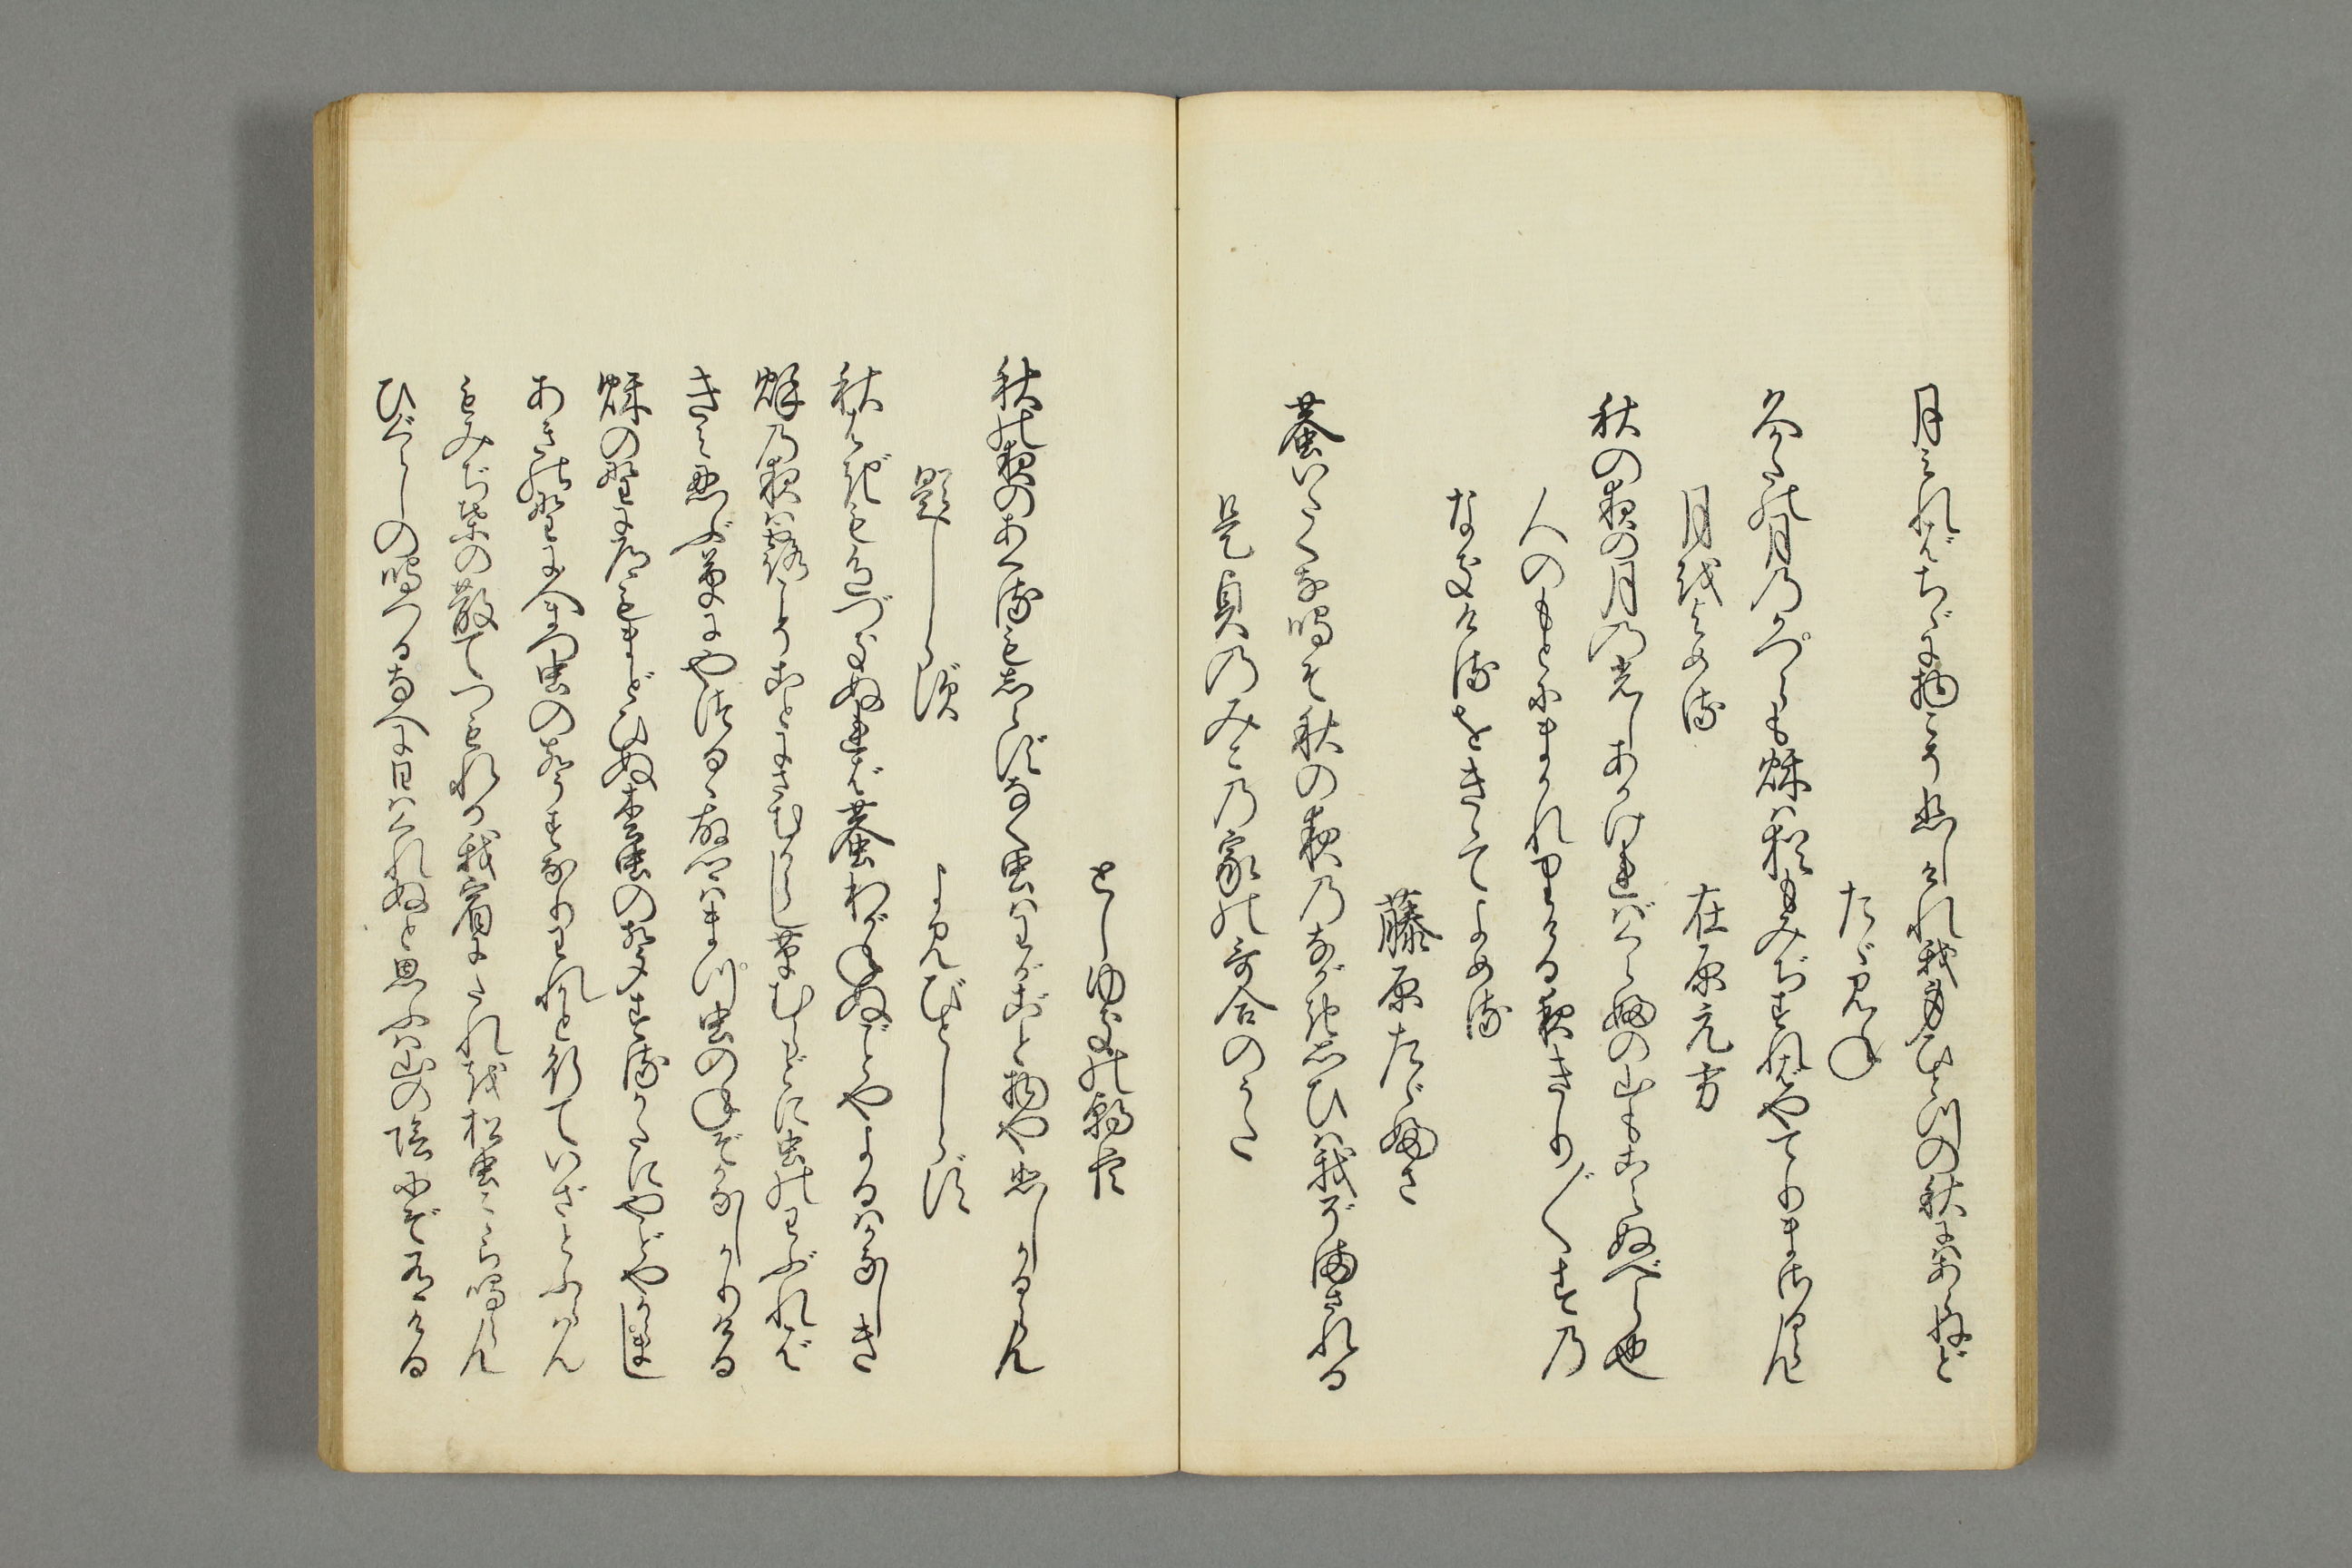 月みればちゞに物こそ悲しけれ我身ひとつの秋にはあらねど
たゞみね
久かたの月のかつらも秋は猶もみぢすればやてりまさるらん
月をよめる
在原元方
秋の夜の月の光しあかければくらふの山もこえぬべら也
人のもとにまかれりける夜きり〴〵すの
なきけるをきゝてよめる
藤原たゞふさ
蛬いたくな鳴そ秋の夜のながき思ひは我ぞまされる
是貞のみこの家の哥合のうた
としゆきの朝臣
秋の夜のあくるもしらずなく虫はわがごと物や悲しかるらん
題しらず
よみびとしらず
秋はぎも色づきぬれば蛬わがねぬごとやよるはかなしき
秋の夜は露こそことにさむからし草むらごとに虫のわぶれば
きみ忍ぶ草にやつるゝ故郷はまつ虫のねぞかなしかりける
秋の野に道もまどひぬ松虫の声する方にやどやからまし
あきの野に人まつ虫の声すなりわれかと行ていざとふらはん
もみぢ葉の散てつもれる我宿にたれを松虫こゝら鳴らん
ひぐらしの鳴つるなへに日はくれぬと思ふは山の陰にぞ有ける